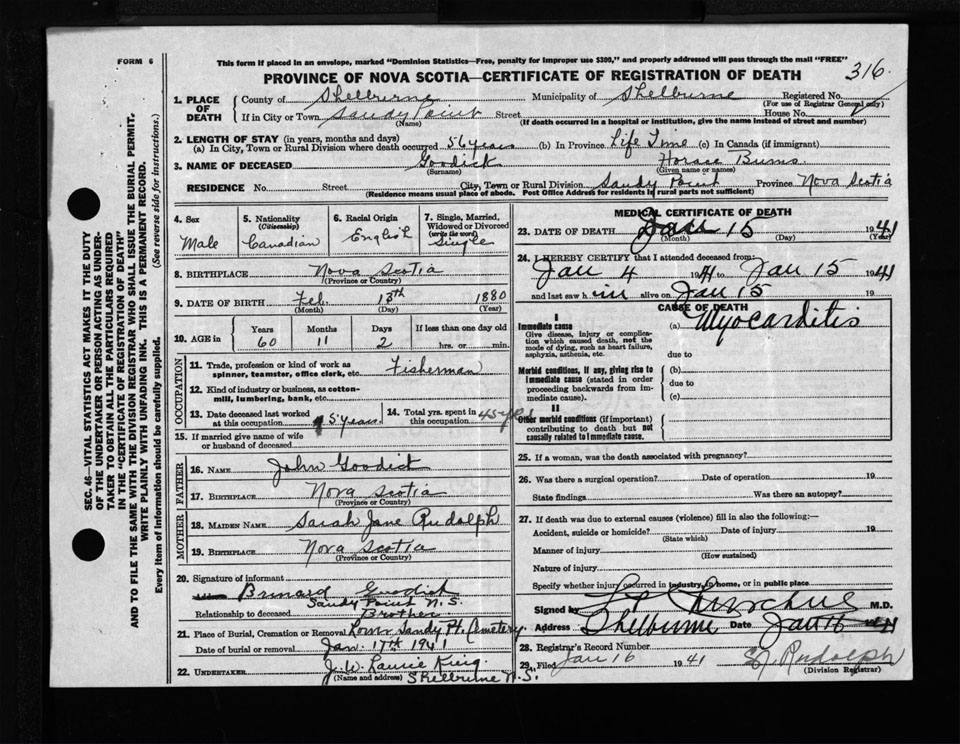 FORM 6
This form if placed in an envelope, marked "Dominion Statistics—Free, penalty for improper use $300," and properly addressed will pass through the mail "FREE"
PROVINCE OF NOVA SCOTIA—CERTIFICATE OF REGISTRATION OF DEATH
316
1. PLACE OF DEATH
County of Shelburne Municipality of Shelburne Registered No.
(For use of Registrar General only)
If in City or Town Sandy Point Street House No.
(Name) (If death occurred in a hospital or institution, give the name instead of street and number)
2. LENGTH OF STAY (in years, months and days)
(a) In City, Town or Rural Division where death occurred 56 years (b) In Province Life Time (c) In Canada (if immigrant)
3. NAME OF DECEASED Goodick Horace Burns
(Surname) (Given name or names)
RESIDENCE No. Street City, Town or Rural Division Sandy Point Province Nova Scotia
(Residence means usual place of abode. Post Office Address for residents in rural parts not sufficient)
4. Sex Male
5. Nationality (Citizenship) Canadian
6. Racial Origin English
7. Single, Married, Widowed or Divorced (write the word) Single
8. BIRTHPLACE Nova Scotia
(Province or Country)
9. DATE OF BIRTH Feb. 13th 1880
(Month) (Day) (Year)
10. AGE in Years Months Days If less than one day old
60 11 2 hrs. or min.
OCCUPATION
11. Trade, profession or kind of work as spinner, teamster, office clerk, etc. Fisherman
12. Kind of industry or business, as cotton-mill, lumbering, bank, etc.
13. Date deceased last worked at this occupation 5 years
14. Total yrs. spent in this occupation 45 yrs
15. If married give name of wife or husband of deceased
FATHER
16. NAME John Goodick
17. BIRTHPLACE Nova Scotia
(Province or Country)
MOTHER
18. MAIDEN NAME Sarah Jane Rudolph
19. BIRTHPLACE Nova Scotia
(Province or Country)
20. Signature of informant
Brinard Goodick
Sandy Point N.S.
Relationship to deceased Brother
21. Place of Burial, Cremation or Removal Lower Sandy Pt. Cemetery
Date of burial or removal Jan. 17th 1941
22. UNDERTAKER J.W. Laurie King
(Name and address) Shelburne N.S.
MEDICAL CERTIFICATE OF DEATH
23. DATE OF DEATH Jan 15 1941
(Month) (Day) (Year)
24. I HEREBY CERTIFY that I attended deceased from:
Jan 4 1941 to Jan 15 1941
and last saw him alive on Jan 15 19
CAUSE OF DEATH
I
Immediate cause (a) Myocarditis
Give disease, injury or complication which caused death, not the mode of dying, such as heart failure, asphyxia, asthenia, etc.
due to
Morbid conditions, if any, giving rise to immediate cause (stated in order proceeding backwards from immediate cause).
(b)
due to
(c)
II
Other morbid conditions (if important) contributing to death but not causally related to immediate cause.
25. If a woman, was the death associated with pregnancy?
26. Was there a surgical operation? Date of operation 19
State findings Was there an autopsy?
27. If death was due to external causes (violence) fill in also the following:—
Accident, suicide or homicide? Date of injury 19
(State which)
Manner of injury
(How sustained)
Nature of injury
Specify whether injury occurred in industry, home, or in public place
Signed by M.D.
Address Shelburne Date Jan 16 1941
28. Registrar's Record Number
29. Filed Jan 16 1941 Rudolph
(Division Registrar)
SEC. 46—VITAL STATISTICS ACT MAKES IT THE DUTY
OF THE UNDERTAKER OR PERSON ACTING AS UNDER-
TAKER TO OBTAIN ALL THE PARTICULARS REQUIRED
IN THE "CERTIFICATE OF REGISTRATION OF DEATH"
AND TO FILE THE SAME WITH DIVISION REGISTRAR WHO SHALL ISSUE THE BURIAL PERMIT.
WRITE PLAINLY WITH UNFADING INK. THIS IS A PERMANENT RECORD.
Every item of information should be carefully supplied. (See reverse side for instructions.)